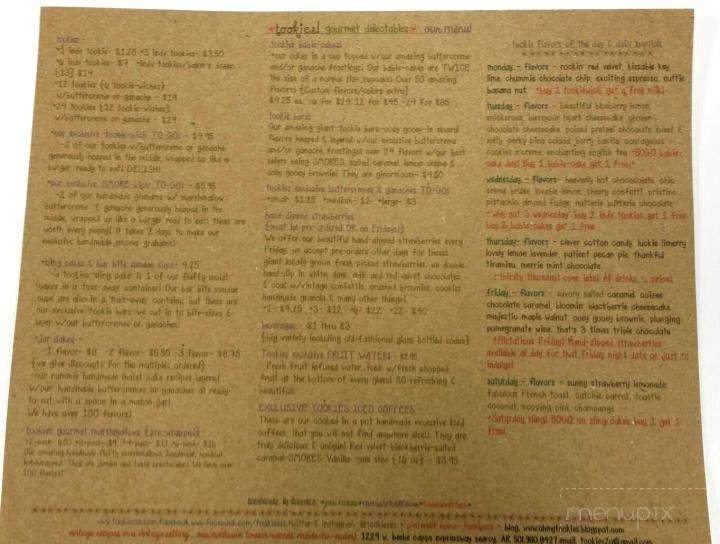 tookies! gourmet delectables • our menu
tookies -
•1 indv tookie- $1.25 •3 indv tookies- $3.50
{13} $14
•12 tookies {6 tookie-wiches}
w/buttercreme or ganache - $14
•24 tookies {12 tookie-wiches}
w/buttercreme or ganache - $24
•our exclusive tookie-wich TO-GO! - $4.95
-2 of our tookies w/buttercreme or ganache
generously heaped in the middle, wrapped up like a
burger, ready to eat! DELISH!
•our exclusive SMORE-wich TO-GO! - $5.95
-2 of our handmade grahams w/ marshmallow
buttercreme & ganache generously heaped in the
middle, wrapped up like a burger, ready to eat! these are
worth every penny! it takes 2 days to make our
exclusive handmade smores grahams!
•sling cakes & bar bite sundae cups- 4.25
-a tookies 'sling cake' is 1 of our fluffy moist
cakes in a toss-away container! Our bar bite sundae
cups are also in a toss-away container, but these are
our exclusive tookie bars we cut in to bite-sizes &
layer w/our buttercremes or ganaches.
•jar cakes -
-1 flavor- $8 -2 flavor- $8.50 -3 flavor- $8.75
{we give discounts for the multiples ordered}
-our nummie handmade moist cake recipes layered
w/our handmade buttercremes or ganaches all ready-
to-eat with a spoon in a mason jar!
We have over 100 flavors!
tookies gourmet marshmallows {pre-wrapped}
100 flavors!
tookies bable-cakes!
•our cakes in a cup topped w/our amazing buttercreme
and/or ganache frostings! Our bable-cakes are TWICE
the size of a normal size cupcake! Over 50 amazing
flavors! {Custom flavors/colors extra}
$4.25 ea. •6 for $24 •12 for $45 •24 for $85
tookie bars!
Our amazing giant tookie bars-ooey gooey-in several
flavors heaped & layered w/our exclusive buttercreme
and/or ganache frostings! over 24 flavors w/our best
sellers being SMORES, salted caramel, lemon creme &
ooey gooey brownie! They are ginormous- $4.50
tookies exclusive buttercremes & ganaches TO-GO!
•small- $1.25 •medium- $2- •large- $3
hand-dipped strawberries
{must be pre-ordered OR on Fridays!}
We offer our beautiful hand-dipped-strawberries every
Friday. we accept pre-orders other days for these!
giant locally grown, fresh picked strawberries, we double
hand-dip in white, dark, milk and red velvet chocolates
& coat w/vintage confettis, crushed brownies, cookies
handmade granola & many other things!
beverages - $1 thru $3
{big variety including old-fashioned glass bottled sodas!}
Tookies exclusive FRUIT WATER! - $2.95
Fresh fruit infused water, iced w/fresh chopped
fruit at the bottom of every glass! SO refreshing &
beautiful!
EXCLUSIVE TOOKIES ICED COFFEES
These are our cooked in a pot handmade exclusive iced
coffees, that you will not find anywhere else!! They are
truly delicious & unique! Red velvet-blackberrie-salted
caramel-SMORES, Vanilla -one size {16 oz} - $3.95
tuckie flavors of the day & daily specials
monday - flavors - rockin' red velvet, kissable key
lime, chummie chocolate chip, exciting espresso, nuttie
banana nut. •buy 2 tookiewich, get a free milk!
tuesday - flavors - blissful blueberry lemon,
chocolate cheesecake, poised pretzel chocolate sweet &
cookies n'creme, enchanting english tea •BOGO bable-
cake day! Buy 1 bable-cake get 1 free!•
wednesday - flavors - heavenly hot chocolate, chic
creme brulee, lovable lemon, cheery confetti, pristine
pistachio, almond fudge, nutterie butterie chocolate
•why not 3 wednesday! buy 2 indv tookies get 1 free
buy 2 bable-cakes get 1 free
thursday- flavors - clever cotton candy, luckie limerry,
lovely lemon lavender, patient pecan pie, thankful
tiramisu, merrie mint chocolate
friday - flavors - savory salted caramel, coieee
chocolate caramel, bloomier blackberrie cheesecake,
majestic maple walnut, ooey gooey brownie, plunging
pomegranate wine, that's 3 times triple chocolate
•Flirtatious Friday! Hand-dipped strawberries
available all day for that friday night date or just to
indulge!
saturday - flavors - sunny strawberry lemonade,
fabulous french toast, catchie carrot, toastie
coconut, popping pink champange
•Saturday slings! BOGO on sling cakes, buy 1 get 1
free!
pinterest
blog. www.ohmytookies.blogspot.com
1224 w. beebe capps expressway searcy, AR
menupix